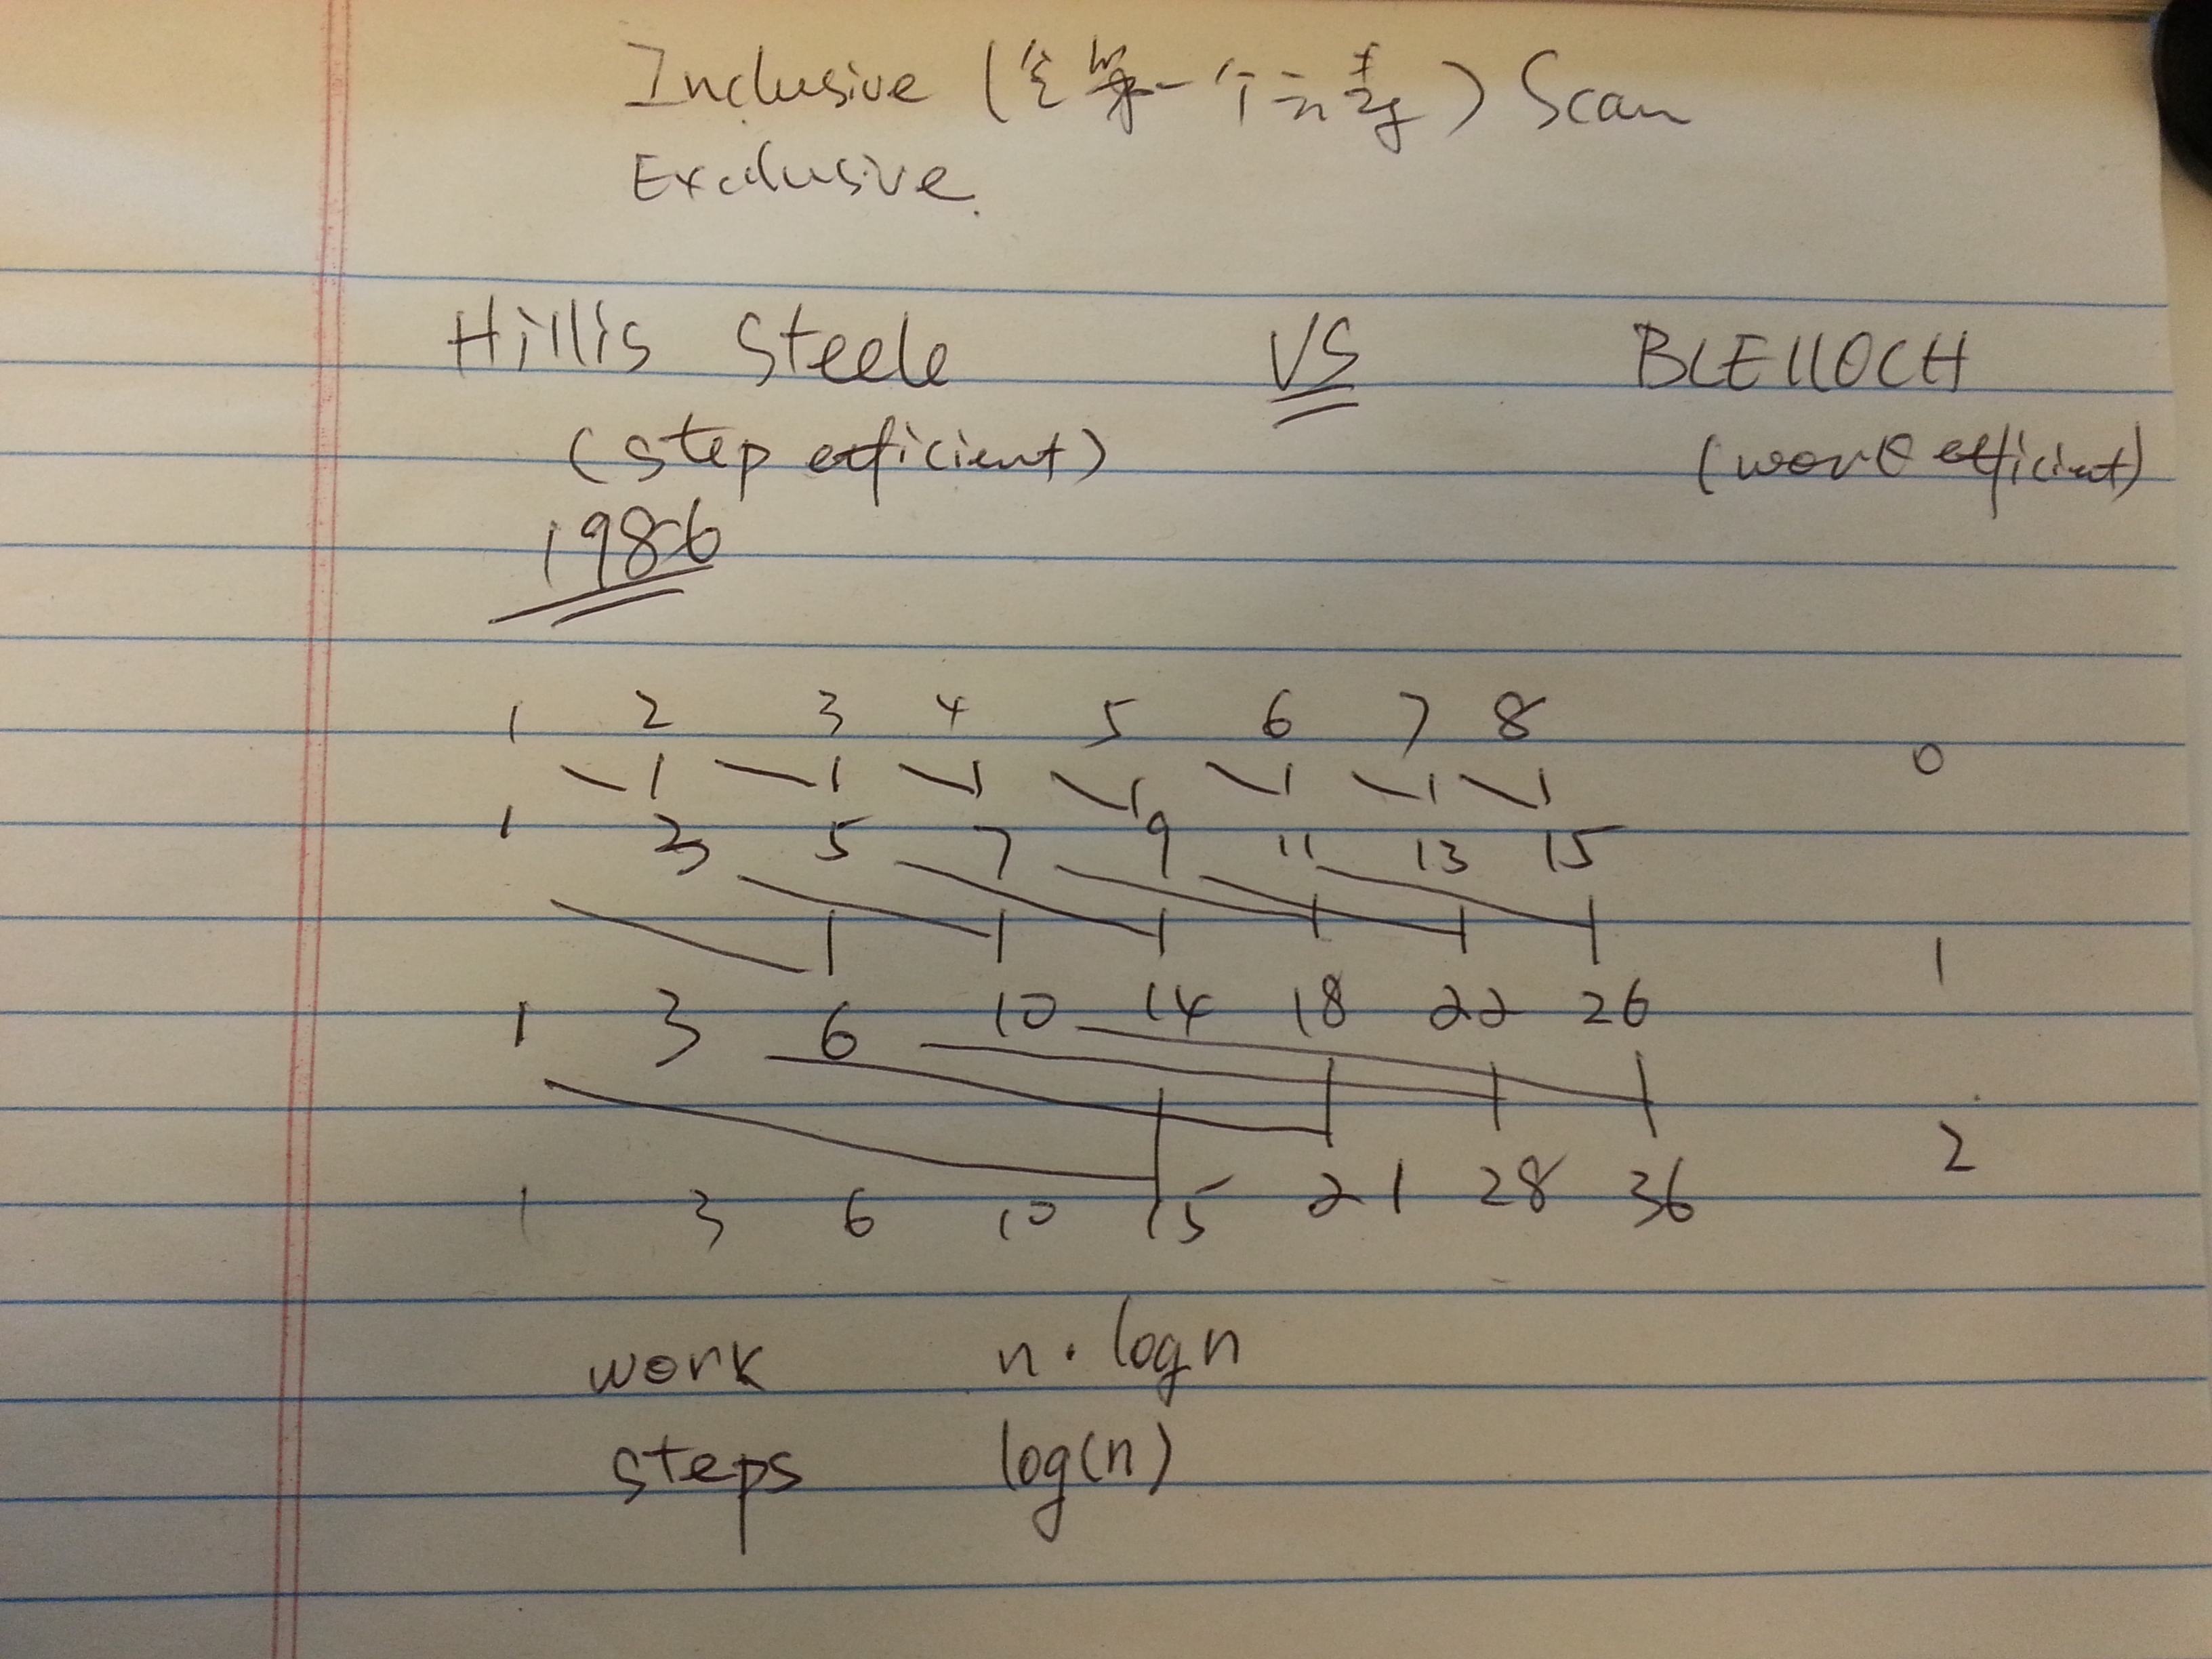 Inclusive (含第一个元素) Scan
Exclusive.
Hillis Steele VS BLEllOCH
(step efficient) (work efficient)
1986
1 2 3 4 5 6 7 8
0
1 3 5 7 9 11 13 15
1
1 3 6 10 14 18 22 26
2
1 3 6 10 15 21 28 36
work n · log n
steps log(n)